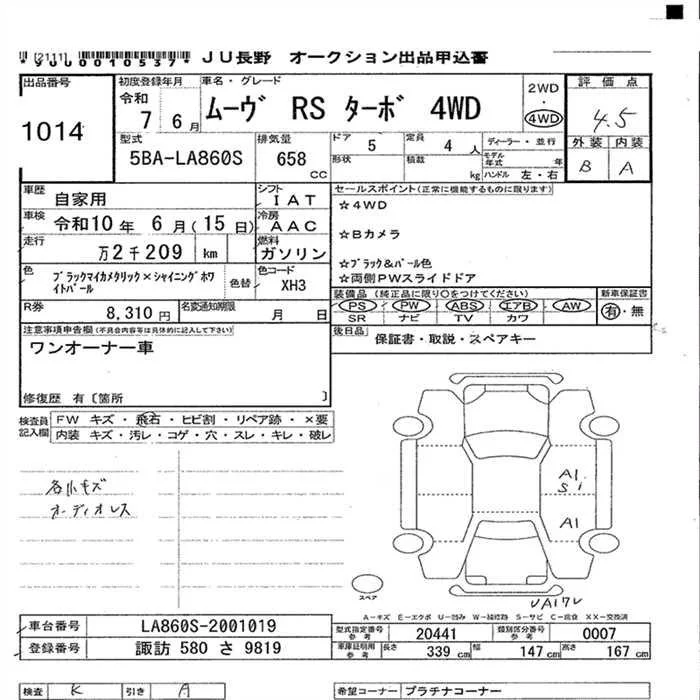 (2111)
*V0U0010537* JU長野 オークション出品申込書
出品番号 1014
初度登録年月 令和 7 6月
車名・グレード ムーヴ RS ターボ 4WD
2WD
・
4WD
評価点 4.5
外装 内装
B A
型式 5BA-LA860S
排気量 658 CC
ドア 5
定員 4人
ディーラー・並行
形状
積載 kg
モデル年式 年
ハンドル 左・右
車歴 自家用
シフト IAT
車検 令和10年 6月(15日)
冷房 AAC
走行 万2千209 km
燃料 ガソリン
色 ブラックマイカメタリック×シャイニングホワイトパール
色替
色コード XH3
R券 8,310円
名変通知期限 月 日
セールスポイント(正常に機能するものに限ります)
☆4WD
☆Bカメラ
☆ブラック&パール色
☆両側PWスライドドア
装備品 (純正品に限り○をつけてください)
PS PW ABS エアB AW
SR ナビ TV カワ
新車保証書
有・無
後日品 保証書・取説・スペアキー
注意事項申告欄(不具合内容等は具体的に記入して下さい)
ワンオーナー車
修復歴 有〔箇所 〕
検査員記入欄
FW キズ・飛石・ヒビ割・リペア跡・×要
内装 キズ・汚レ・コゲ・穴・スレ・キレ・破レ
各小キズ
オーディオレス
A1
Si
A1
スペア
A-キズ E-エクボ U-凹み W-補修跡 S-サビ C-腐食 XX-交換済
車台番号 LA860S-2001019
登録番号 諏訪 580 さ 9819
型式指定番号 参考 20441
類別区分番号 参考 0007
車庫証明用 参考 長さ 339 cm 幅 147 cm 高さ 167 cm
検査 K 引き A
希望コーナー プラチナコーナー